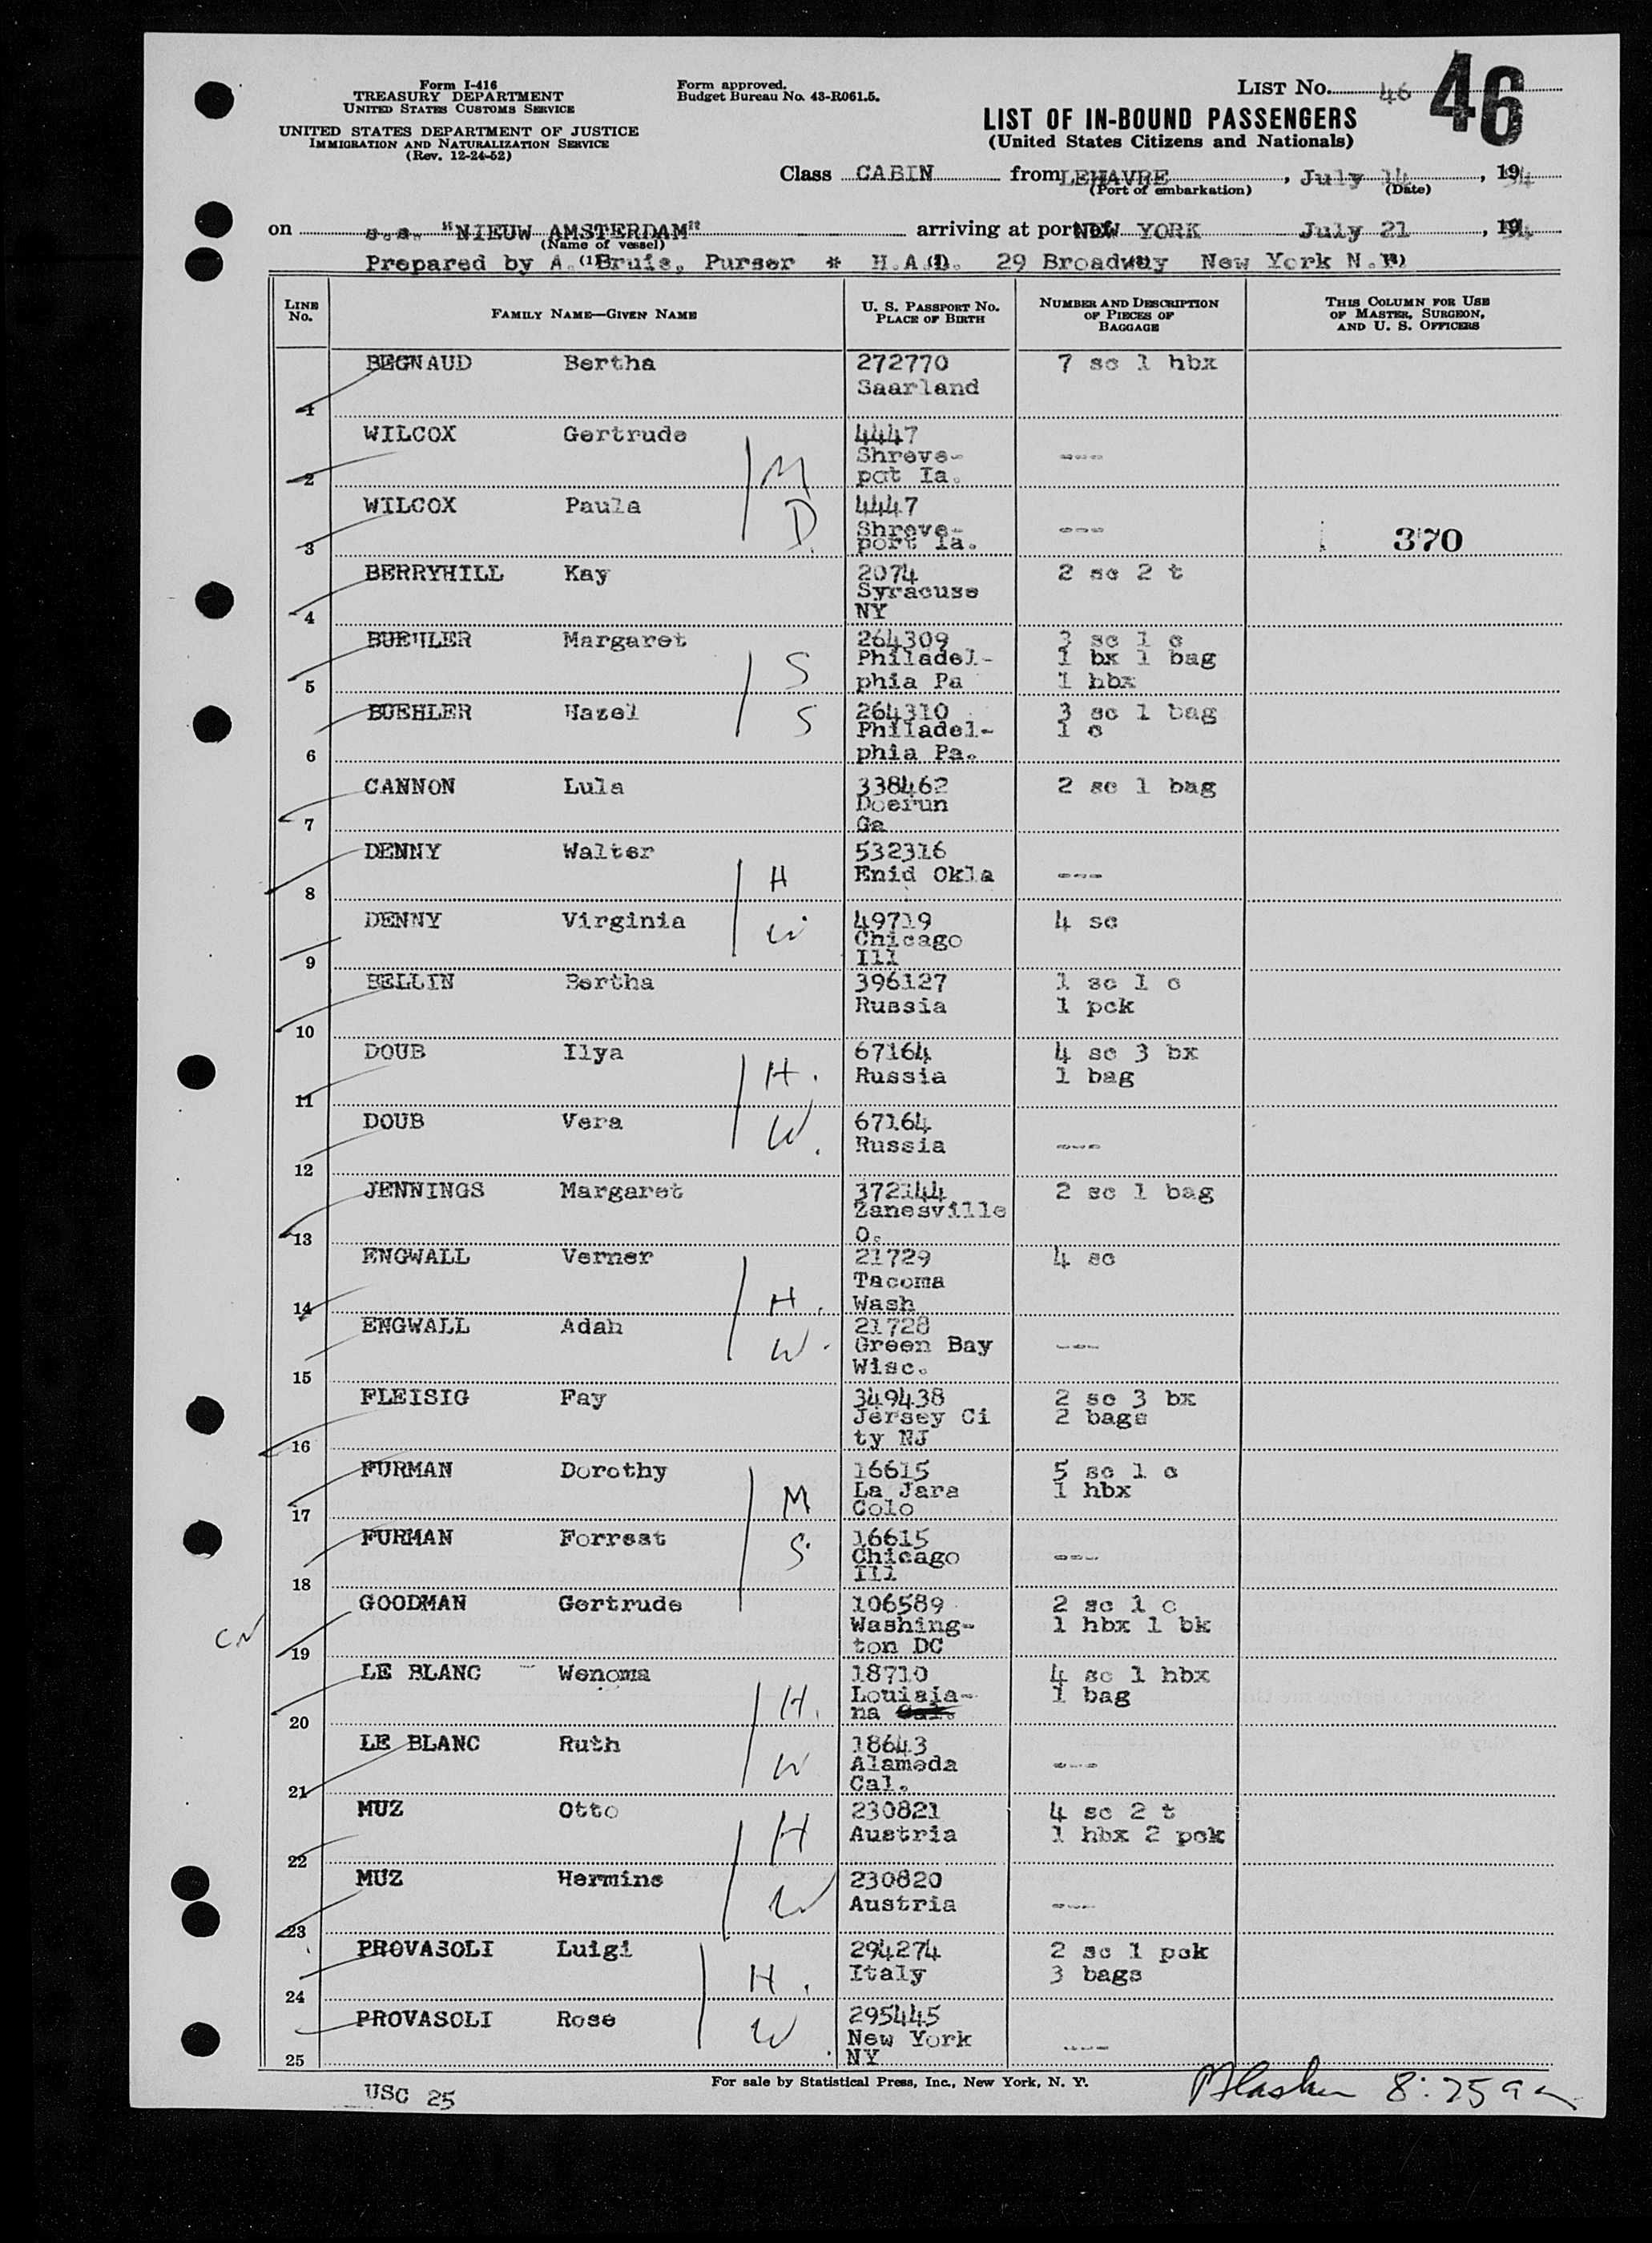 Form I-416
TREASURY DEPARTMENT
UNITED STATES CUSTOMS SERVICE
UNITED STATES DEPARTMENT OF JUSTICE
IMMIGRATION AND NATURALIZATION SERVICE
(Rev. 12-24-52)
Form approved.
Budget Bureau No. 43-R061.5.
LIST No. 46 46
LIST OF IN-BOUND PASSENGERS
(United States Citizens and Nationals)
Class CABIN from LEHAVRE, July 14, 1954
(Port of embarkation) (Date)
on s.s. "NIEUW AMSTERDAM" arriving at port of NEW YORK July 21, 1954
(Name of vessel)
Prepared by A. Bruis, Purser * H.A.L. 29 Broadway New York N.Y.
LINE No. FAMILY NAME—GIVEN NAME U. S. PASSPORT NO. PLACE OF BIRTH NUMBER AND DESCRIPTION OF PIECES OF BAGGAGE THIS COLUMN FOR USE OF MASTER, SURGEON, AND U. S. OFFICERS
BEGNAUD Bertha 272770 7 sc 1 hbx
Saarland
1
WILCOX Gertrude 4447
M Shreve- ----
2 pot Ia.
WILCOX Paula 4447
D. Shreve- ---
3 port Ia. 370
BERRYHILL Kay 2074 2 sc 2 t
Syracuse
4 NY
BUEHLER Margaret 264309 3 sc 1 c
S Philadel- 1 bx 1 bag
5 phia Pa 1 hbx
BUEHLER Hazel S 264310 3 sc 1 bag
Philadel- 1 c
6 phia Pa.
CANNON Lula 338462 2 sc 1 bag
Doerun
7 Ga
DENNY Walter 532316
H Enid Okla ---
8
DENNY Virginia 49719 4 sc
W Chicago
9 Ill
BELLIN Bertha 396127 1 sc 1 c
Russia 1 pck
10
DOUB Ilya 67164 4 sc 3 bx
H. Russia 1 bag
11
DOUB Vera 67164
W. Russia ---
12
JENNINGS Margaret 372144 2 sc 1 bag
Zanesville
13 O.
ENGWALL Verner 21729 4 sc
Tacoma
14 H. Wash
ENGWALL Adah 21728
W. Green Bay ---
15 Wisc.
FLEISIG Fay 349438 2 sc 3 bx
Jersey Ci 2 bags
16 ty NJ
FURMAN Dorothy 16615 5 sc 1 c
M La Jara 1 hbx
17 Colo
FURMAN Forrest 16615
S. Chicago ---
18 Ill
GOODMAN Gertrude 106589 2 sc 1 c
CN Washing- 1 hbx 1 bk
19 ton DC
LE BLANC Wenoma 18710 4 sc 1 hbx
H. Louisia- 1 bag
20 na
LE BLANC Ruth 18643
W Alameda ---
21 Cal.
MUZ Otto 230821 4 sc 2 t
H Austria 1 hbx 2 pck
22
MUZ Hermine 230820
W Austria ---
23
PROVASOLI Luigi 294274 2 sc 1 pck
H. Italy 3 bags
24
PROVASOLI Rose 295445
W New York ---
25 NY
For sale by Statistical Press, Inc., New York, N. Y.
USC 25
8:25 am